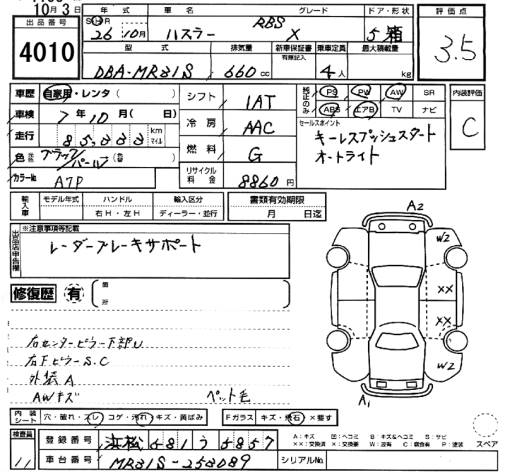 10月3日
出品番号
4010
年式 車名 グレード ドア・形状
26年10月 ハスラー RBS X 5 箱
型式 排気量 新車保証書 有無記入 乗車定員 最大積載量
DBA-MR31S 660cc 4人 kg
評価点
3.5
車歴 自家用・レンタ( )
車検 7年10月( 日)
走行 85,333 km マイル
色 ブラックパール
カラーNo A7P
シフト 1AT
冷房 AAC
燃料 G
リサイクル料金 8860円
純正のみ PS PW AW SR
ABS エアB TV ナビ
セールスポイント
キーレスプッシュスタート
オートライト
内装評価
C
輸入車 モデル年式 ハンドル 輸入区分
右H・左H ディーラー・並行
書類有効期限
月 日迄
出品店申告欄
※注意事項等記載
レーダーブレーキサポート
修復歴 有
箇所
右センターピラー下部U
右Fピラー S.C
外装A
AWキズ ペット毛
A2
W2
XX
XX
W2
A1
内装シート 穴・破れ・スレ コゲ・汚れ キズ・黄ばみ
Fガラス キズ・飛石 ×要す
検査員 11
登録番号 浜松 581う5857
車台番号 MR31S-258089
シリアルNo.
A:キズ U:凹ヘコミ B:キズ&ヘコミ S:サビ
××:交換済 ×:要交換 W:波有 C:腐食有 P:塗装
スペア